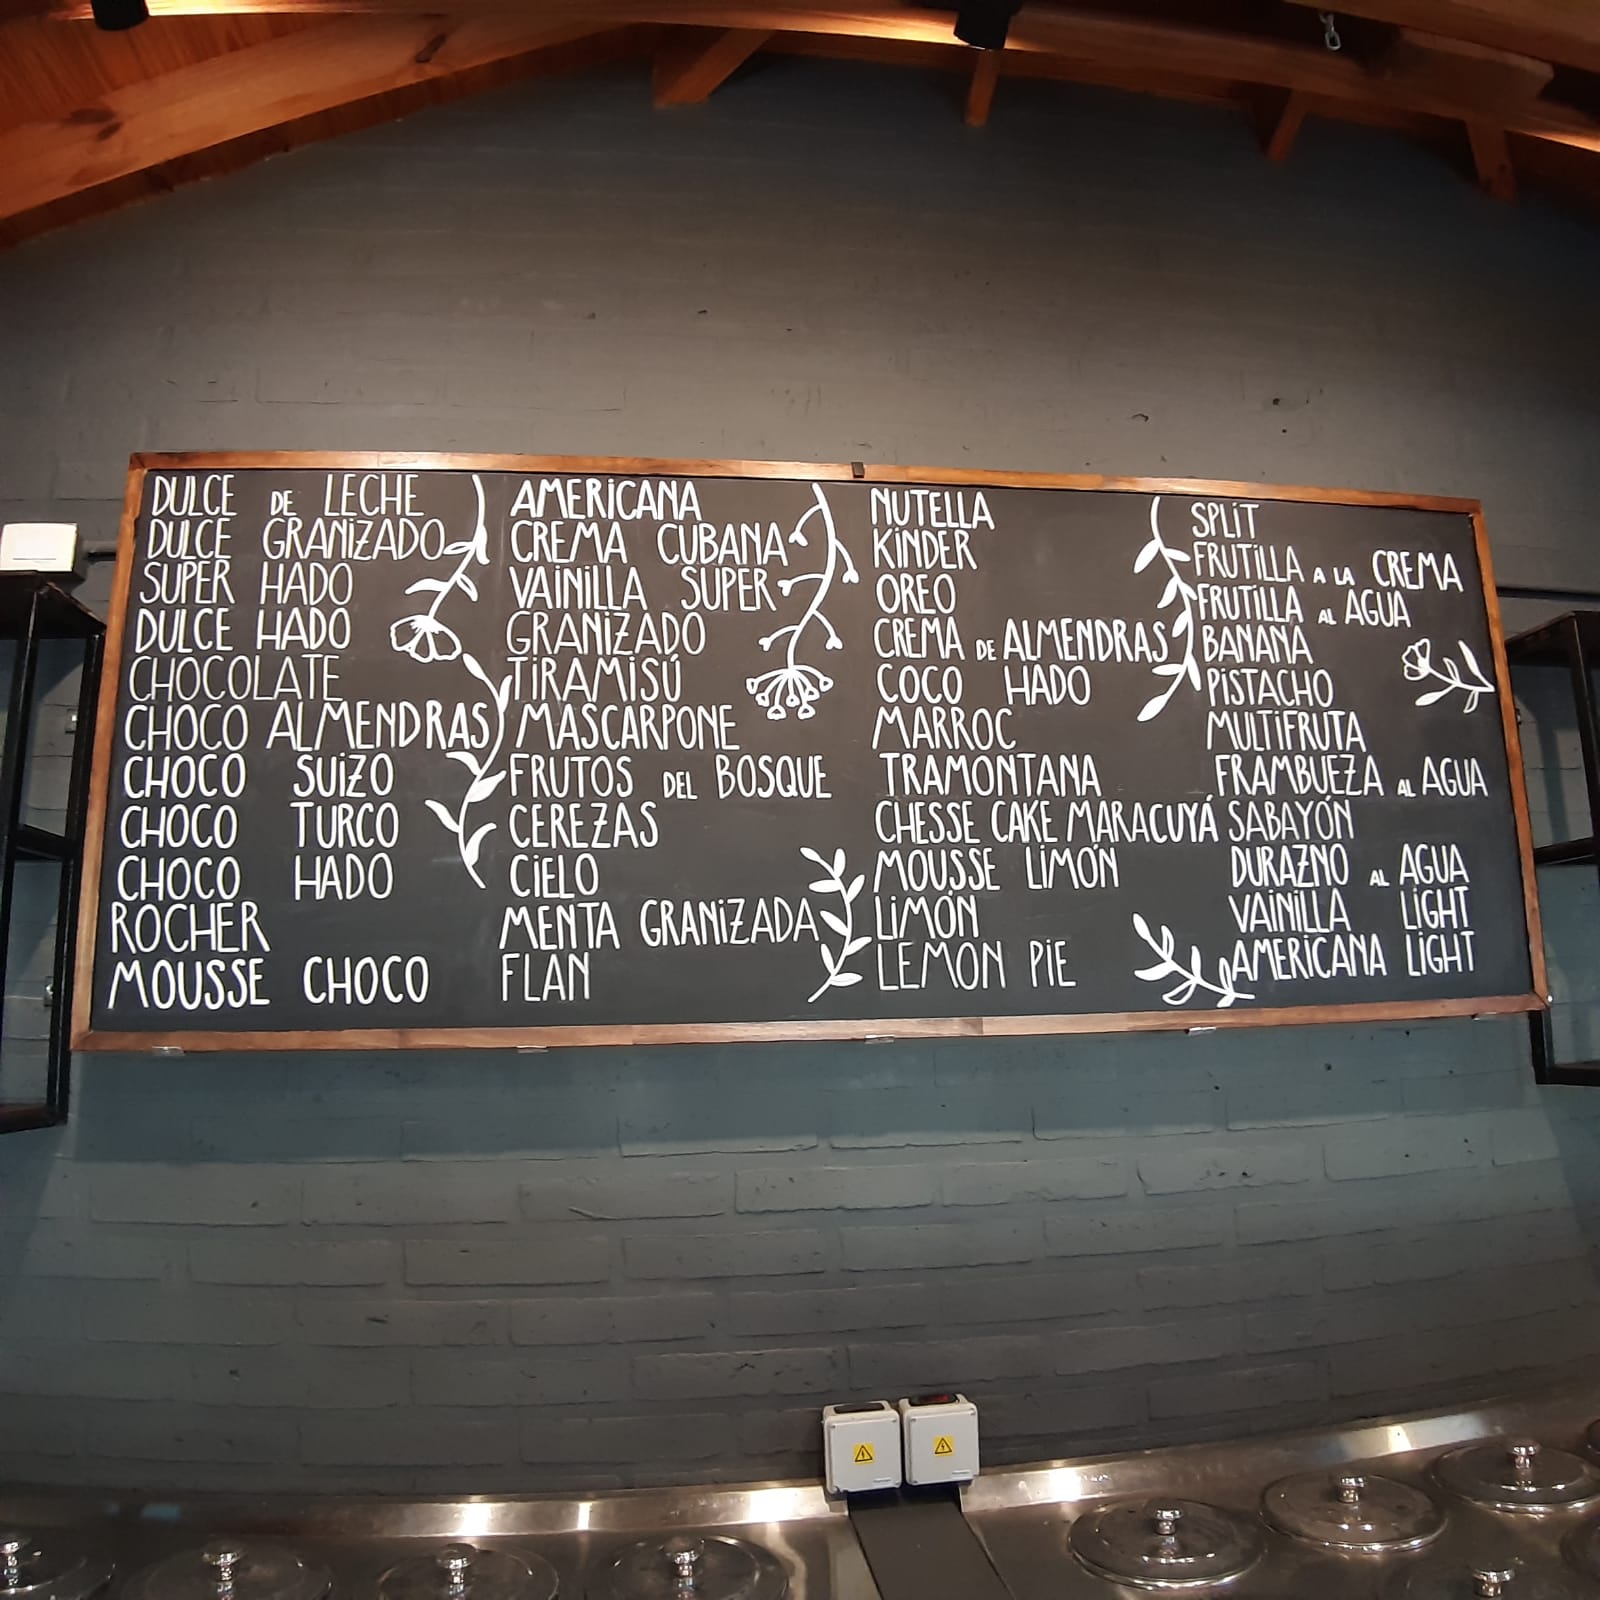 DULCE DE LECHE
DULCE GRANIZADO
SUPER HADO
DULCE HADO
CHOCOLATE
CHOCO ALMENDRAS
CHOCO SUIZO
CHOCO TURCO
CHOCO HADO
ROCHER
MOUSSE CHOCO
AMERICANA
CREMA CUBANA
VAINILLA SUPER
GRANIZADO
TIRAMISÚ
MASCARPONE
FRUTOS DEL BOSQUE
CEREZAS
CIELO
MENTA GRANIZADA
FLAN
NUTELLA
KINDER
OREO
CREMA DE ALMENDRAS
COCO HADO
MARROC
TRAMONTANA
CHESSE CAKE MARACUYÁ
MOUSSE LIMÓN
LIMÓN
LEMON PIE
SPLIT
FRUTILLA A LA CREMA
FRUTILLA AL AGUA
BANANA
PISTACHO
MULTIFRUTA
FRAMBUEZA AL AGUA
SABAYÓN
DURAZNO AL AGUA
VAINILLA LIGHT
AMERICANA LIGHT